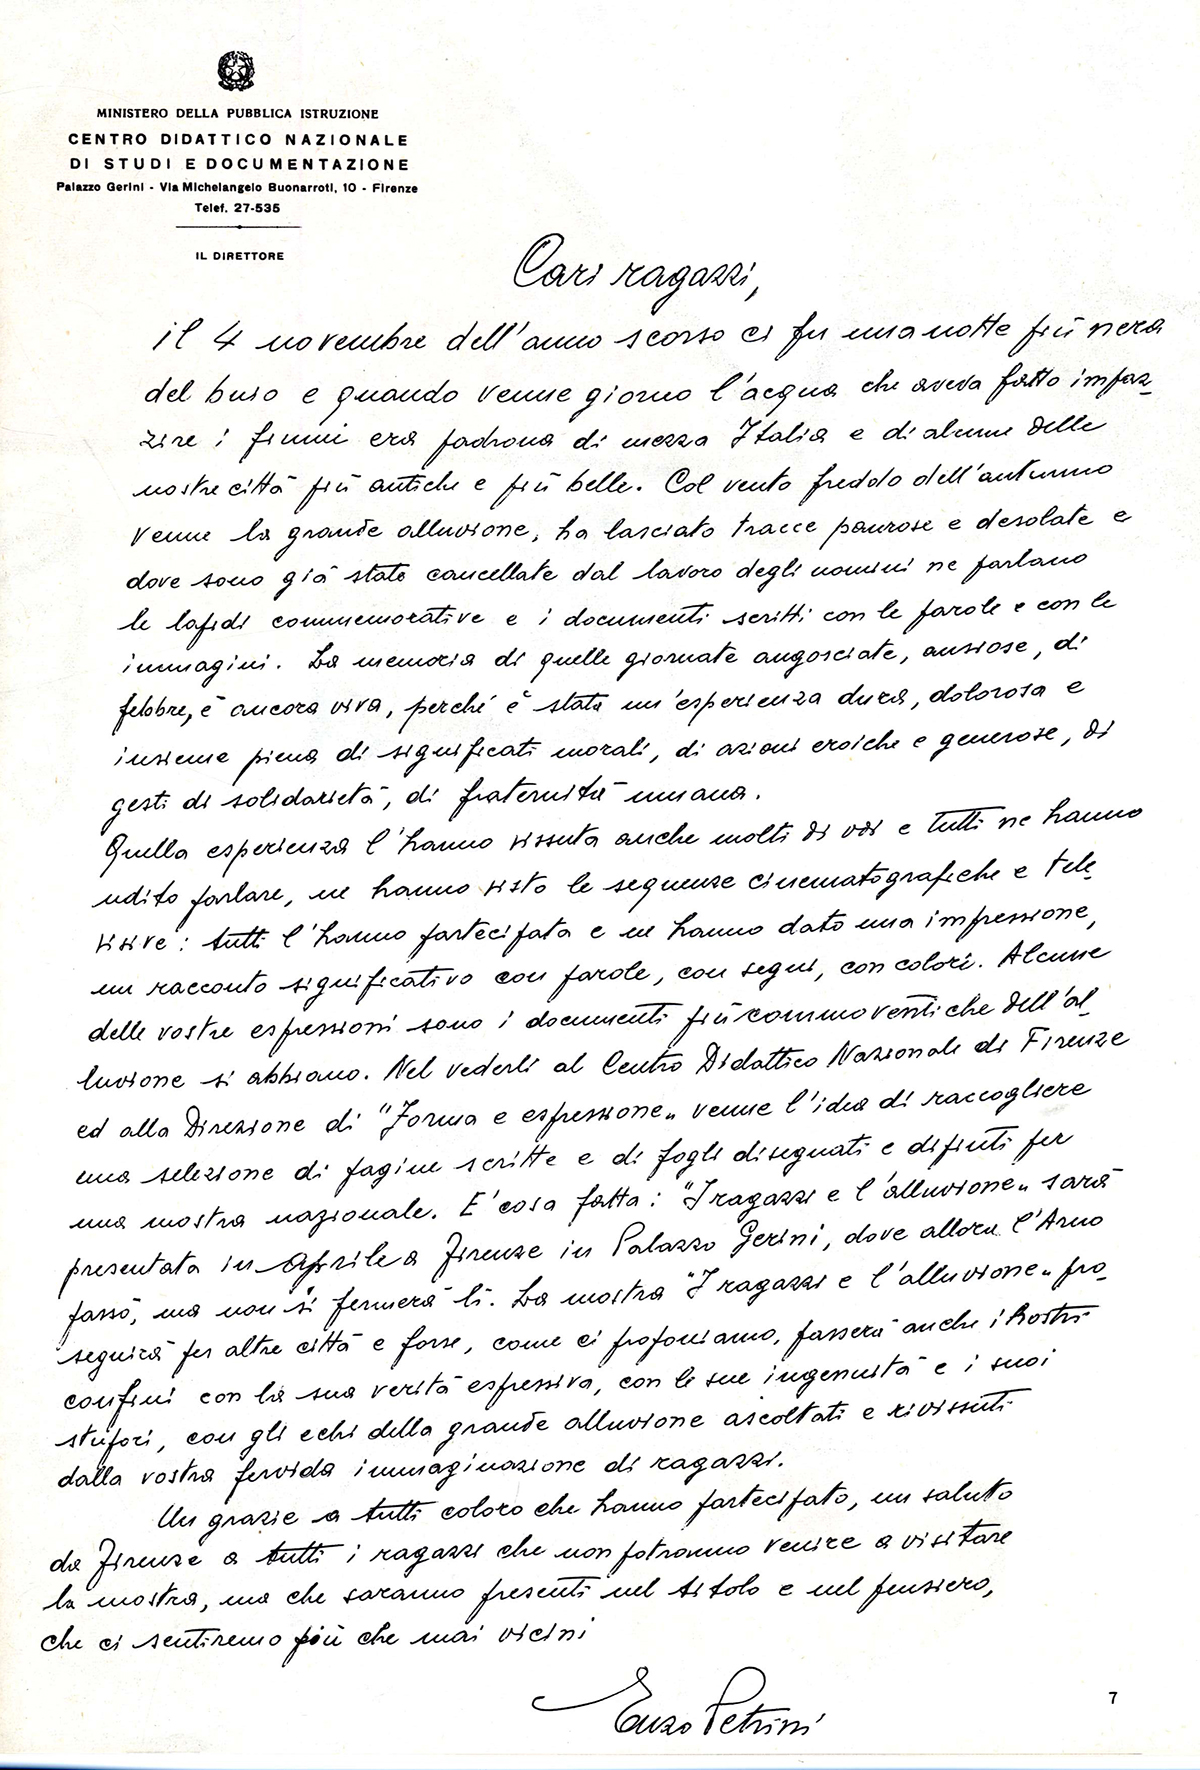 MINISTERO DELLA PUBBLICA ISTRUZIONE
CENTRO DIDATTICO NAZIONALE
DI STUDI E DOCUMENTAZIONE
Palazzo Gerini - Via Michelangelo Buonarroti, 10 - Firenze
Telef. 27-535
IL DIRETTORE
Cari ragazzi,
il 4 novembre dell'anno scorso ci fu una notte più nera
del buio e quando venne giorno l'acqua che aveva fatto impaz-
zire i fiumi era padrona di mezza Italia e di alcune delle
nostre città più antiche e più belle. Col vento freddo dell'autunno
venne la grande alluvione, ha lasciato tracce paurose e desolate e
dove sono già state cancellate dal lavoro degli uomini ne parlano
le lapidi commemorative e i documenti scritti con le parole e con le
immagini. La memoria di quelle giornate angosciate, ansiose, di
febbre, è ancora viva, perché è stata un'esperienza dura, dolorosa e
insieme piena di significati morali, di azioni eroiche e generose, di
gesti di solidarietà, di fraternità umana.
Quella esperienza l'hanno vissuta anche molti di voi e tutti ne hanno
udito parlare, ne hanno visto le sequenze cinematografiche e tele-
visive: tutti l'hanno partecipata e ne hanno dato una impressione,
un racconto significativo con parole, con segni, con colori. Alcune
delle vostre espressioni sono i documenti più commoventi che dell'al-
luvione si abbiano. Nel vederli al Centro Didattico Nazionale di Firenze
ed alla Direzione di "Forma e espressione" venne l'idea di raccogliere
una selezione di pagine scritte e di fogli disegnati e dipinti per
una mostra nazionale. E' cosa fatta: "I ragazzi e l'alluvione" sarà
presentata in Aprile a Firenze in Palazzo Gerini, dove allora l'Arno
passò, ma non si fermerà lì. La mostra "I ragazzi e l'alluvione" pro-
seguirà per altre città e forse, come ci proponiamo, passerà anche i nostri
confini con la sua verità espressiva, con le sue ingenuità e i suoi
stupori, con gli echi della grande alluvione ascoltati e rivissuti
dalla vostra fervida immaginazione di ragazzi.
Un grazie a tutti coloro che hanno partecipato, un saluto
da Firenze a tutti i ragazzi che non potranno venire a visitare
la mostra, ma che saranno presenti nel titolo e nel pensiero,
che ci sentiremo più che mai vicini
Enzo Petrini
7